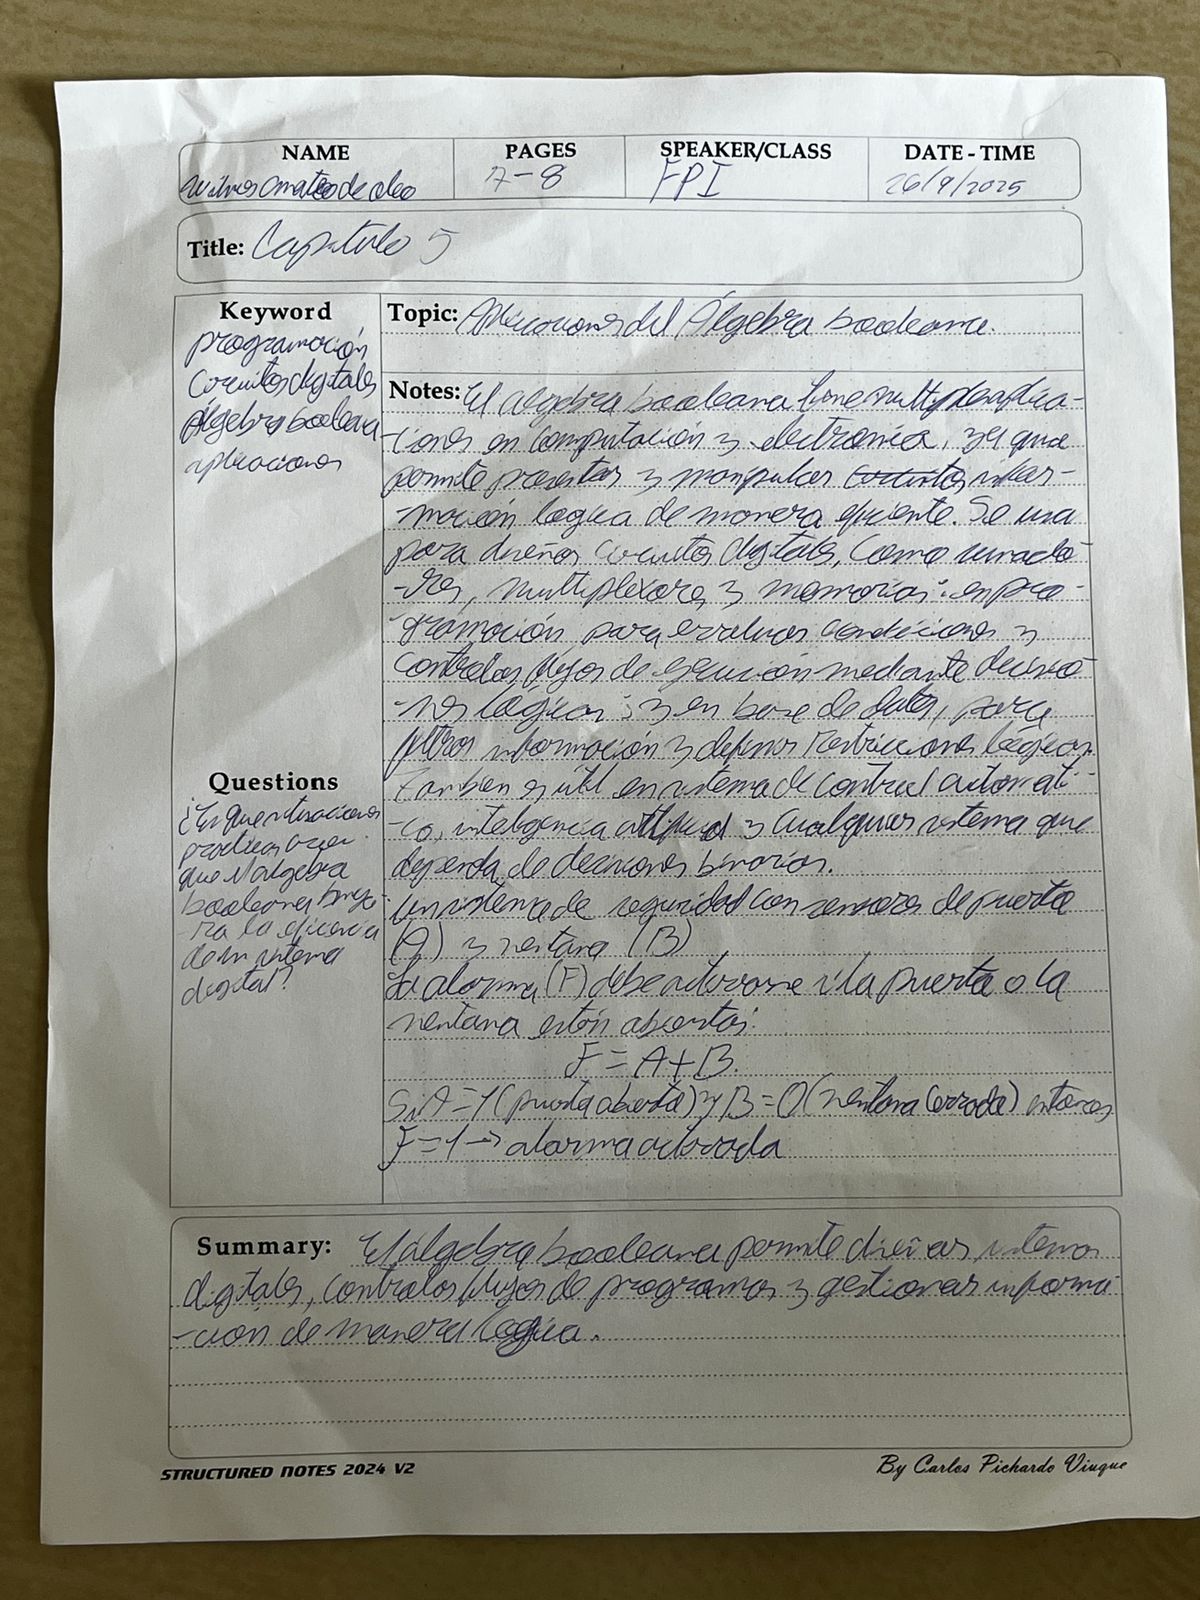 NAME
PAGES
SPEAKER/CLASS
DATE - TIME
mateo de oleo
7-8
FPI
26/9/2025
Title: Capitulo 5
Keyword
programación
Circuitos digitales
Álgebra booleana
aplicaciones
Topic: Aplicaciones del Álgebra booleana.
Notes: El algebra booleana tiene multiples aplica-
-ciones en computación y electronica, ya que
permite presentar y manipular infor-
-mación logica de manera eficiente. Se usa
para diseñar circuitos digitales, como sumado-
-res, multiplexores y memorias: en pro-
-gramación para evaluar condiciones y
controlar flujos de ejecución mediante decisio-
-nes lógicas; y en base de datos, para
filtrar información y definir restricciones lógicas.
Tambien es útil en sistema de control automati-
-co, inteligencia artificial y cualquier sistema que
dependa de decisiones binarias.
Un sistema de seguridad con sensores de puerta
(A) y ventana (B)
La alarma (F) debe activarse si la puerta o la
ventana están abiertas:
F = A + B.
Si A = 1 (puerta abierta) y B = 0 (ventana cerrada) entonces
F = 1 → alarma activada
Questions
¿En que situaciones
practicas crees
que el algebra
booleana mejo-
-ra la eficiencia
de un sistema
digital?
Summary: El algebra booleana permite diseñar sistemas
digitales, controlar flujos de programas y gestionar informa-
-cion de manera logica.
STRUCTURED NOTES 2024 V2
By Carlos Pichardo Viuque